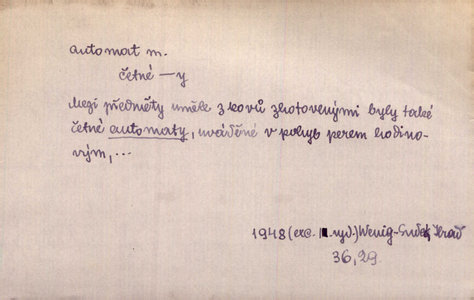 automat m.
četné —y
Mezi předměty uměle z kovů zhotovenými byly také
četné automaty, uváděné v pohyb perem hodino-
vým,...
1948 (exc. vyd.) Wenig-
36, 29